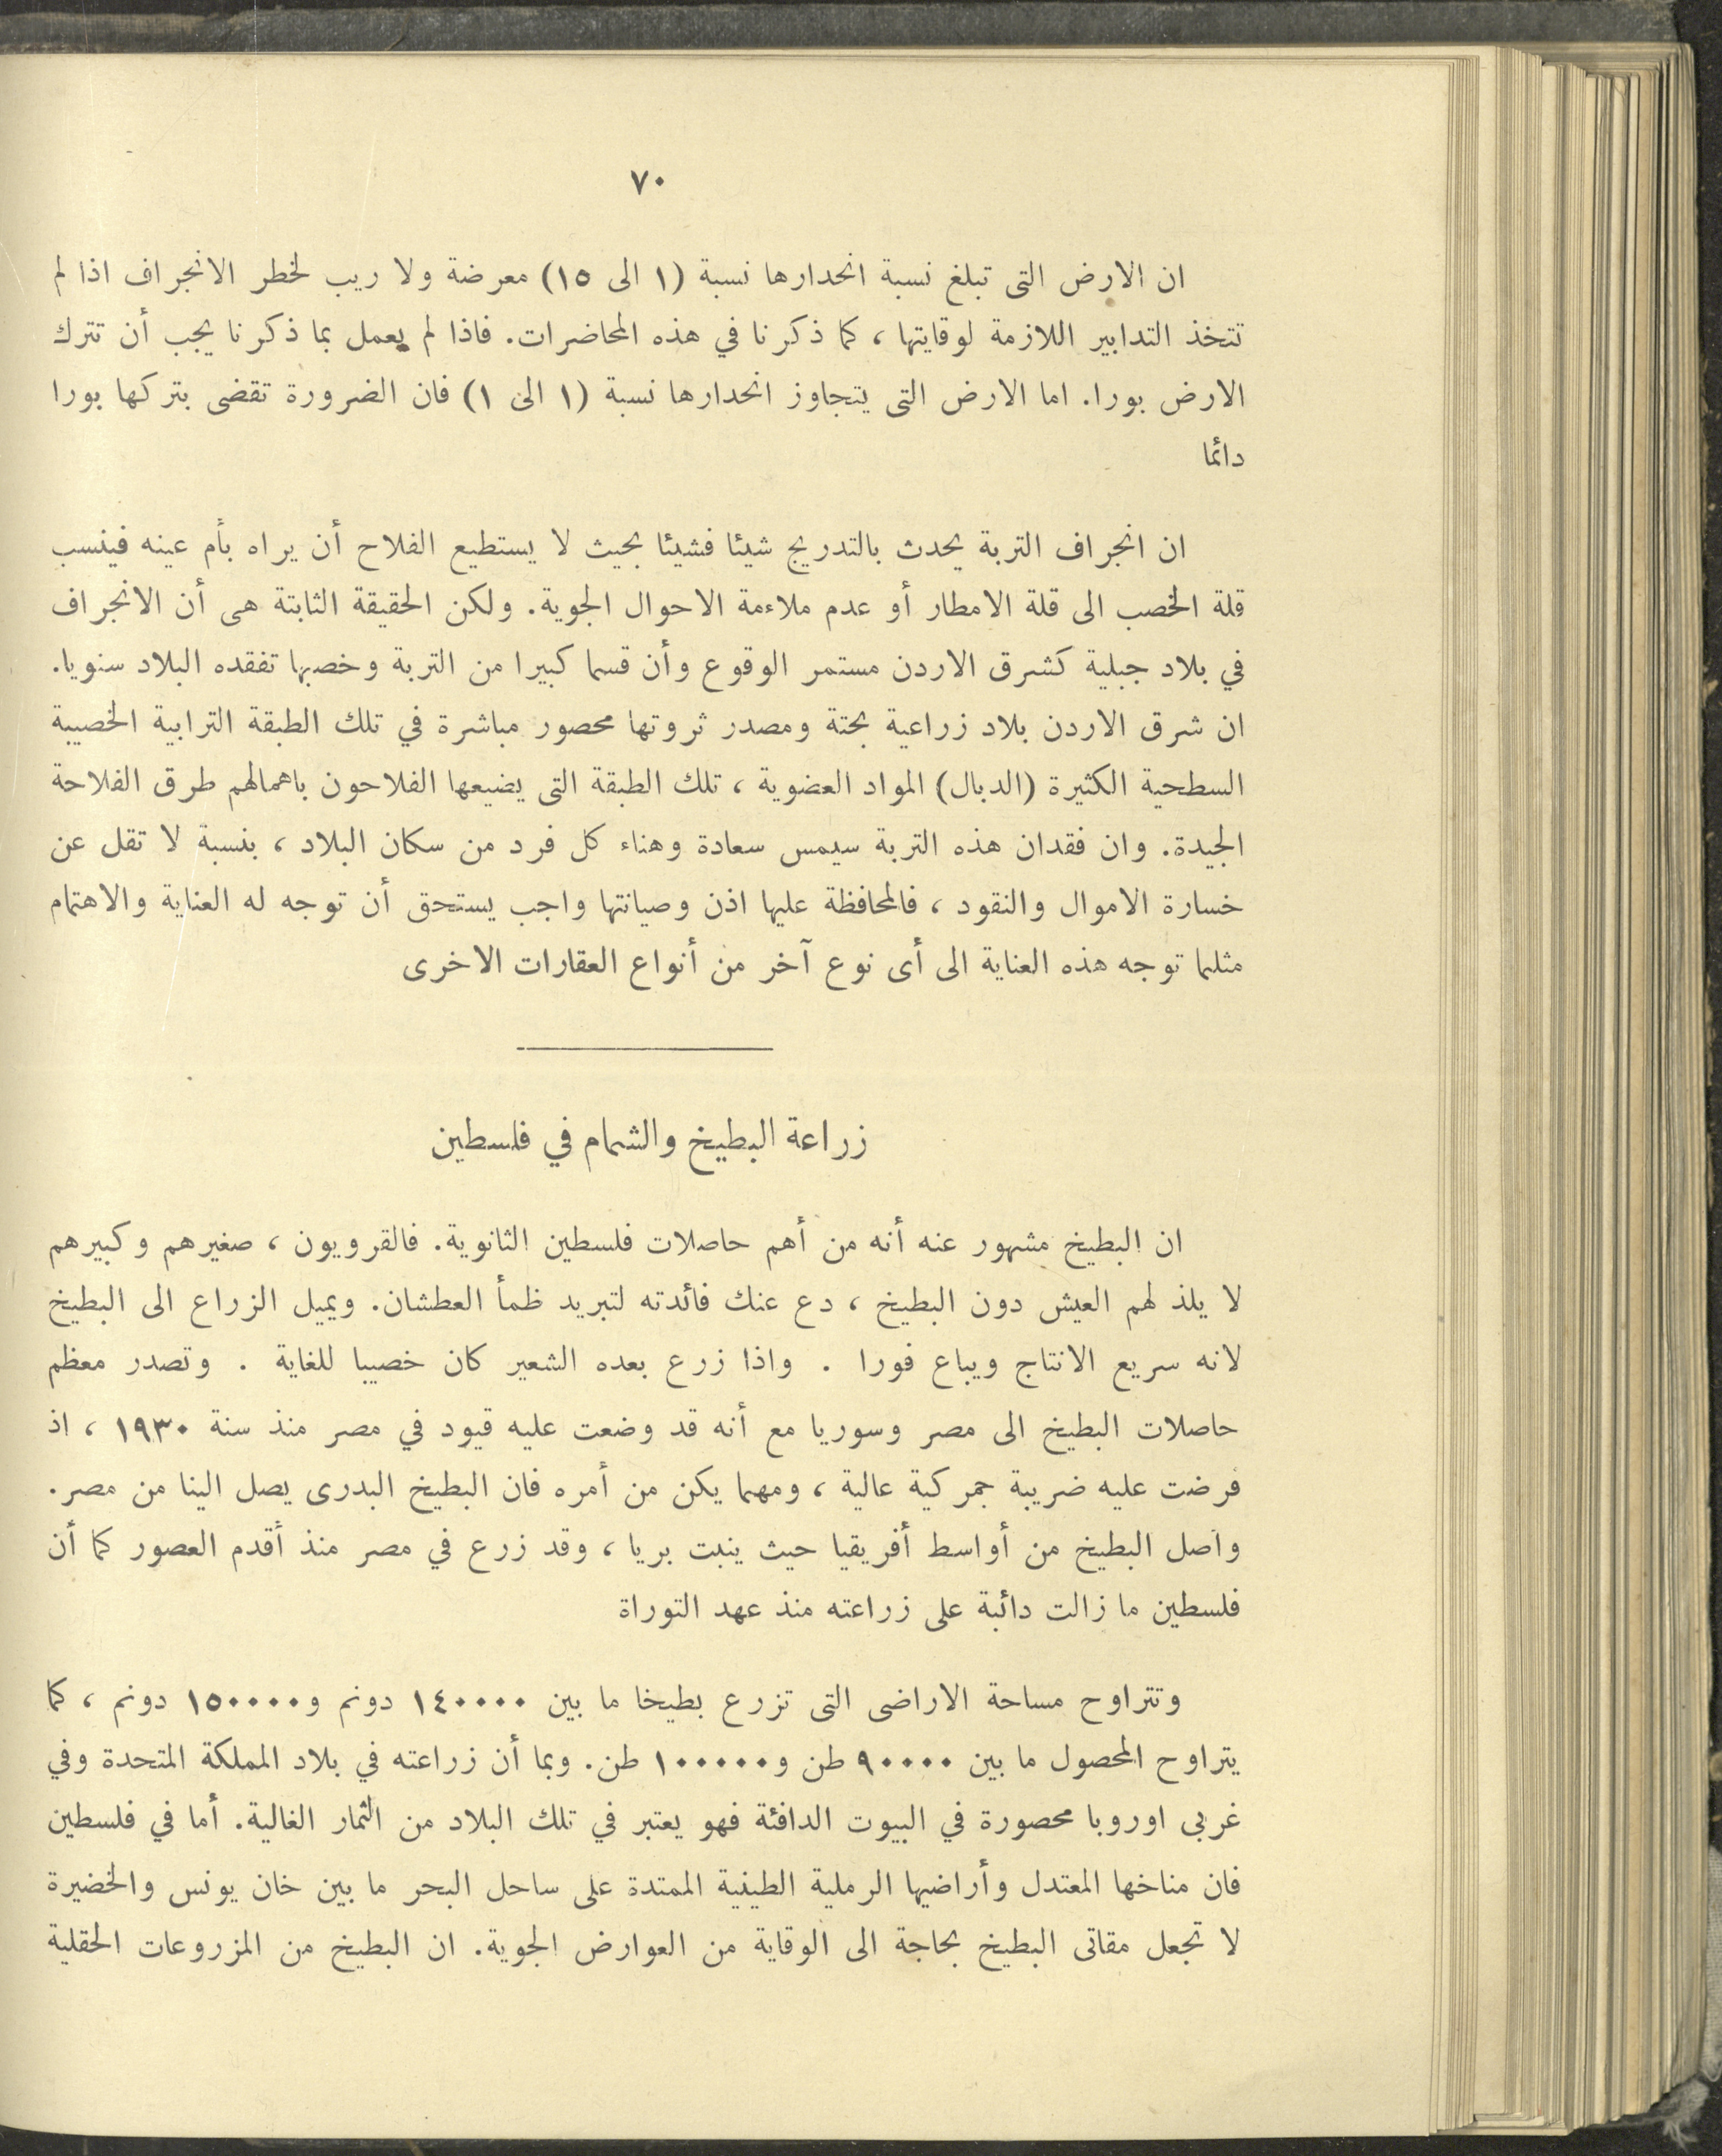 ٧٠
ان الارض التى تبلغ نسبة انحدارها نسبة (١ الى ١٥) معرضة ولا ريب لخطر الانجراف اذا لم
تتخذ التدابير اللازمة لوقايتها ، كما ذكرنا في هذه المحاضرات. فاذا لم يعمل بما ذكرنا يجب أن تترك
الارض بورا. اما الارض التى يتجاوز انحدارها نسبة (١ الى ١) فان الضرورة تقضى بتركها بورا
دائما
ان انجراف التربة يحدث بالتدريج شيئا فشيئا بحيث لا يستطيع الفلاح أن يراه بأم عينه فينسب
قلة الخصب الى قلة الامطار أو عدم ملاءمة الاحوال الجوية. ولكن الحقيقة الثابتة هى أن الانجراف
في بلاد جبلية كشرق الاردن مستمر الوقوع وأن قسما كبيرا من التربة وخصبها تفقده البلاد سنويا.
ان شرق الاردن بلاد زراعية بحتة ومصدر ثروتها محصور مباشرة في تلك الطبقة الترابية الخصيبة
السطحية الكثيرة (الدبال) المواد العضوية ، تلك الطبقة التى يضيعها الفلاحون باهمالهم طرق الفلاحة
الجيدة. وان فقدان هذه التربة سيمس سعادة وهناء كل فرد من سكان البلاد ، بنسبة لا تقل عن
خسارة الاموال والنقود ، فالمحافظة عليها اذن وصيانتها واجب يستحق أن توجه له العناية والاهتمام
مثلما توجه هذه العناية الى أى نوع آخر من أنواع العقارات الاخرى
زراعة البطيخ والشمام في فلسطين
ان البطيخ مشهور عنه أنه من أهم حاصلات فلسطين الثانوية. فالقرويون ، صغيرهم وكبيرهم
لا يلذ لهم العيش دون البطيخ ، دع عنك فائدته لتبريد ظمأ العطشان. ويميل الزراع الى البطيخ
لانه سريع الانتاج ويباع فورا . واذا زرع بعده الشعير كان خصيبا للغاية . وتصدر معظم
حاصلات البطيخ الى مصر وسوريا مع أنه قد وضعت عليه قيود في مصر منذ سنة ١٩٣٠ ، اذ
فرضت عليه ضريبة جمركية عالية ، ومهما يكن من أمره فان البطيخ البدرى يصل الينا من مصر.
وأصل البطيخ من أواسط أفريقيا حيث ينبت بريا ، وقد زرع في مصر منذ أقدم العصور كما أن
فلسطين ما زالت دائبة على زراعته منذ عهد التوراة
وتتراوح مساحة الاراضى التى تزرع بطيخا ما بين ١٤٠٠٠٠ دونم و١٥٠٠٠٠ دونم ، كما
يتراوح المحصول ما بين ٩٠٠٠٠ طن و١٠٠٠٠٠ طن. وبما أن زراعته في بلاد المملكة المتحدة وفي
غربى اوروبا محصورة في البيوت الدافئة فهو يعتبر في تلك البلاد من الثمار الغالية. أما في فلسطين
فان مناخها المعتدل وأراضيها الرملية الطينية الممتدة على ساحل البحر ما بين خان يونس والخضيرة
لا تجعل مقاثى البطيخ بحاجة الى الوقاية من العوارض الجوية. ان البطيخ من المزروعات الحقلية